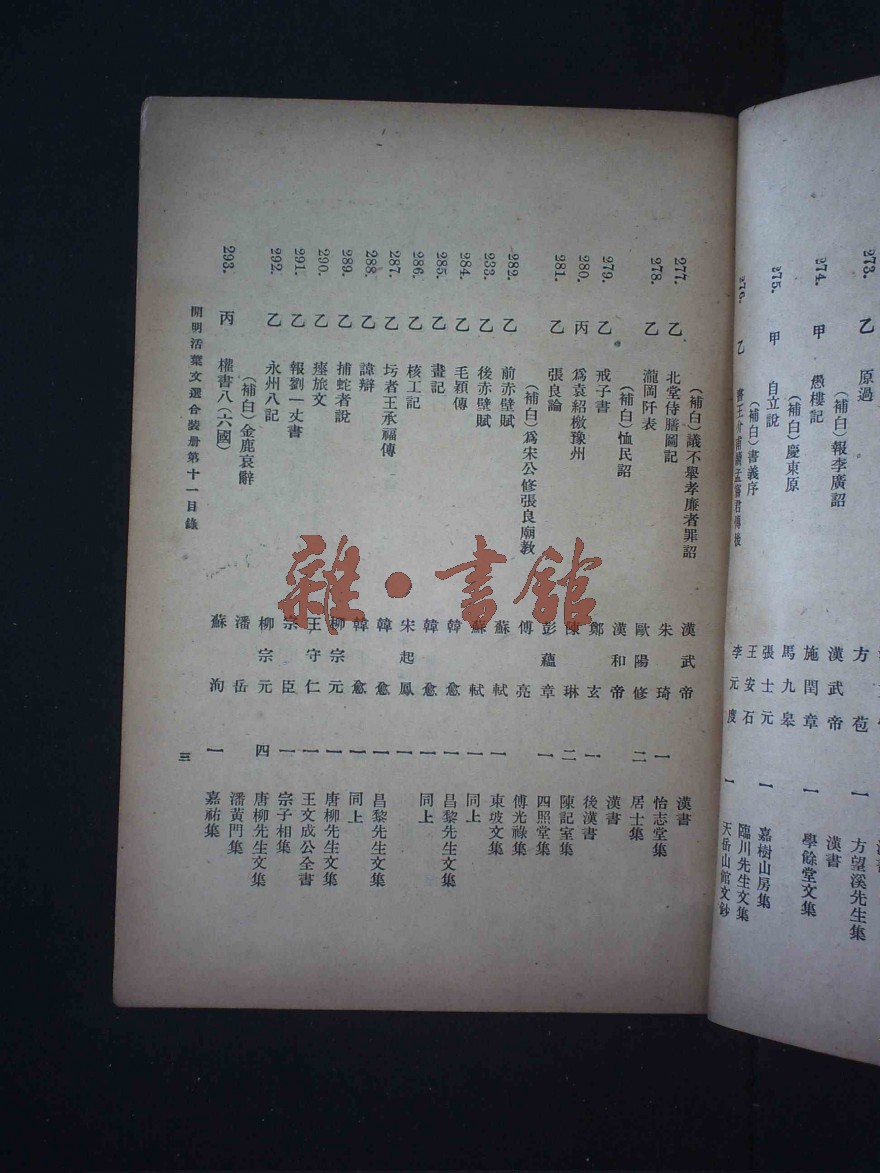 273. 乙 原過 方苞 一 方望溪先生集
（補白）報李廣詔 漢武帝 漢書
274. 甲 愚樓記 施閏章 一 學餘堂文集
（補白）慶東原 馬九皋
275. 甲 自立說 張士元 一 嘉樹山房集
（補白）書義序 王安石 臨川先生文集
276. 乙 書王介甫讀孟嘗君傳後 李元度 一 天岳山館文鈔
（補白）議不舉孝廉者罪詔 漢武帝 漢書
277. 乙 北堂侍膳圖記 朱琦 一 怡志堂集
278. 乙 瀧岡阡表 歐陽修 二 居士集
（補白）恤民詔 漢和帝 漢書
279. 乙 戒子書 鄭玄 一 後漢書
280. 丙 爲袁紹檄豫州 陳琳 二 陳記室集
281. 乙 張良論 彭蘊章 一 四照堂集
（補白）爲宋公修張良廟教 傅亮 傅光祿集
282. 乙 前赤壁賦 蘇軾 一 東坡文集
283. 乙 後赤壁賦 蘇軾 一 同上
284. 乙 毛穎傳 韓愈 一 昌黎先生文集
285. 乙 畫記 韓愈 一 同上
286. 乙 核工記 宋起鳳 一
287. 乙 圬者王承福傳 韓愈 一 昌黎先生文集
288. 乙 諱辯 韓愈 一 同上
289. 乙 捕蛇者說 柳宗元 一 唐柳先生文集
290. 乙 瘞旅文 王守仁 一 王文成公全書
291. 乙 報劉一丈書 宗臣 一 宗子相集
292. 乙 永州八記 柳宗元 四 唐柳先生文集
（補白）金鹿哀辭 潘岳 潘黃門集
293. 丙 權書八（六國） 蘇洵 一 嘉祐集
開明活葉文選合裝册第十一目錄 三
雜·書館